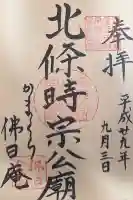 奉拝
平成廿九年
九月三日
北條時宗公廟
かまくら
佛日庵